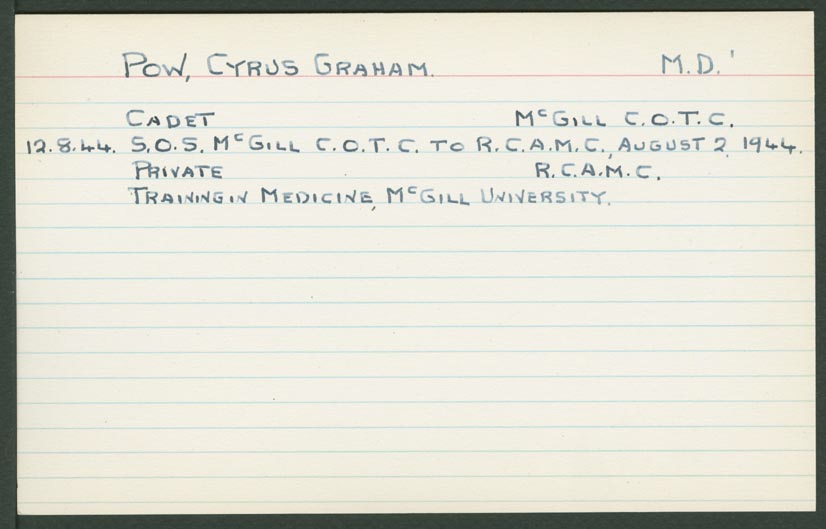 POW, CYRUS GRAHAM. M.D.'
CADET McGILL C.O.T.C.
12.8.44. S.O.S. McGILL C.O.T.C. TO R.C.A.M.C., AUGUST 2, 1944.
PRIVATE R.C.A.M.C.
TRAINING IN MEDICINE, McGILL UNIVERSITY.